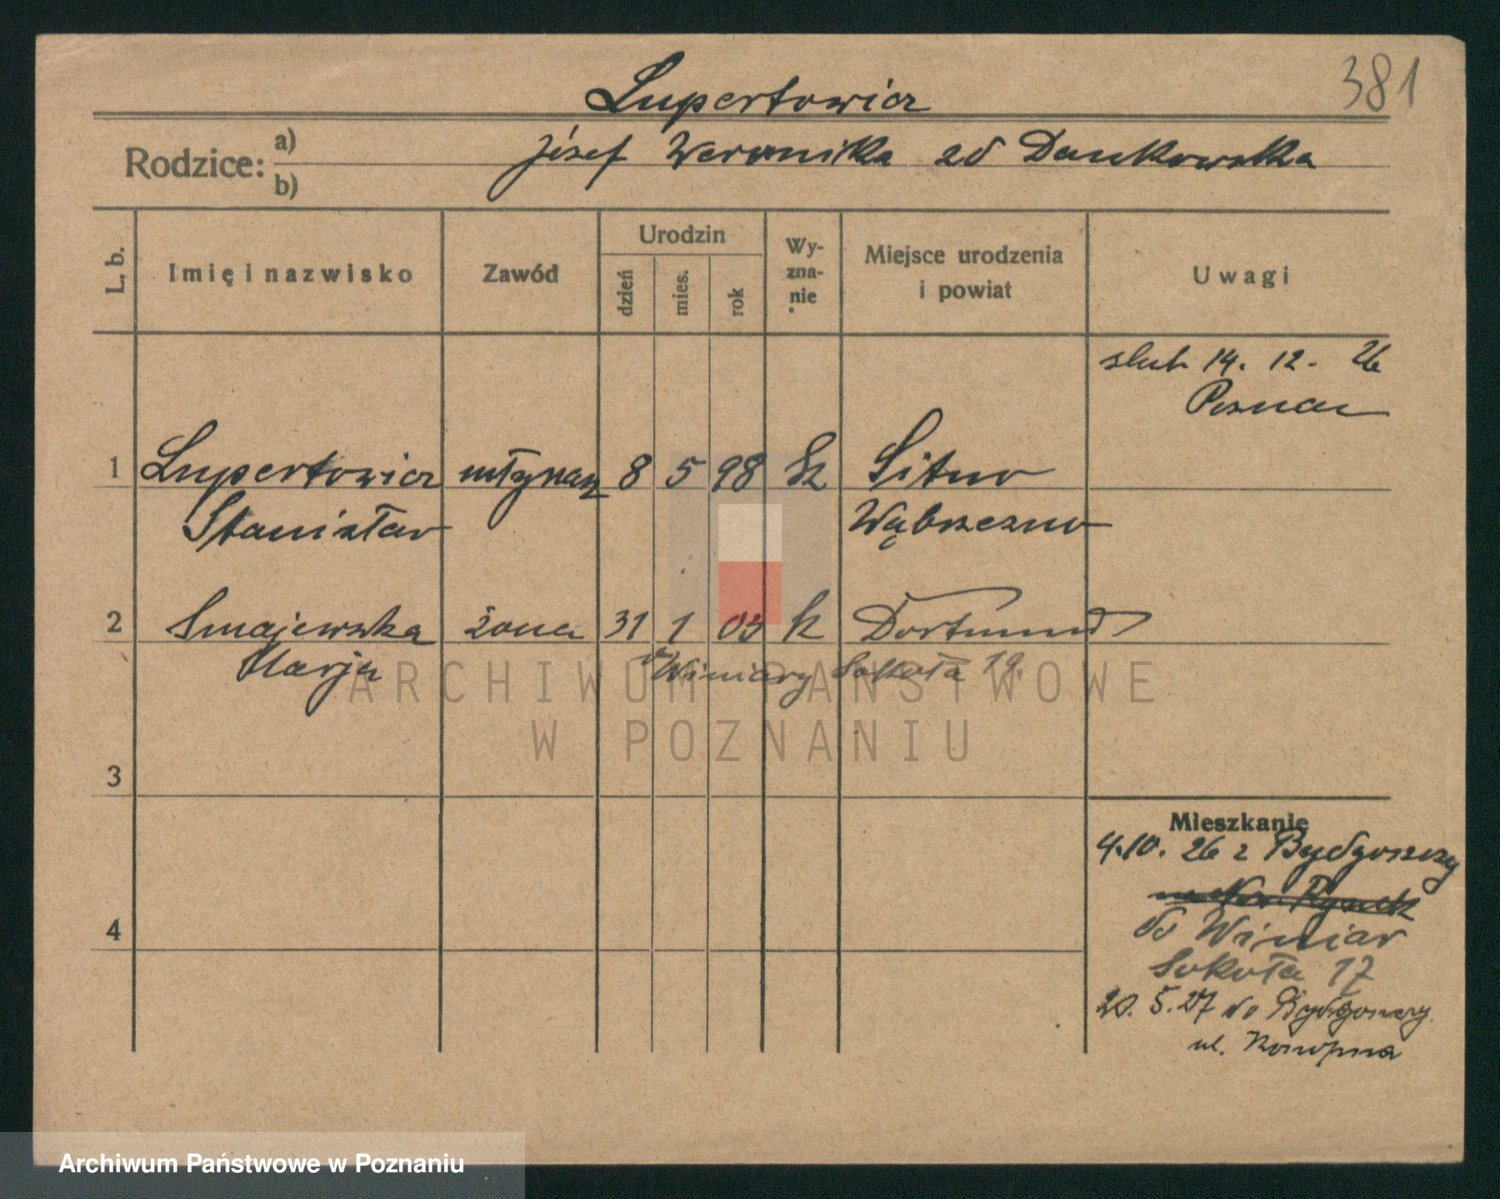 381
Lupertowicz
Rodzice: a) Józef Weronika zd Dankowska
b)
L. b. Imię i nazwisko Zawód Urodzin dzień mies. rok Wyznanie Miejsce urodzenia i powiat Uwagi
ślub 14. 12. 26
Poznań
1 Lupertowicz młynarz 8 5 98 Sitno
Stanisław Wąbrzeźno
2 Smajewska żona 31 1 03 k Dortmund
Marja Winiary Sokoła 19.
3
Mieszkanie
4.10. 26 z Bydgoszczy
Rynek
4 do Winiar
Sokoła 17
20. 5. 27 do Bydgoszczy
ul. Konopna
ARCHIWUM PAŃSTWOWE
W POZNANIU
Archiwum Państwowe w Poznaniu